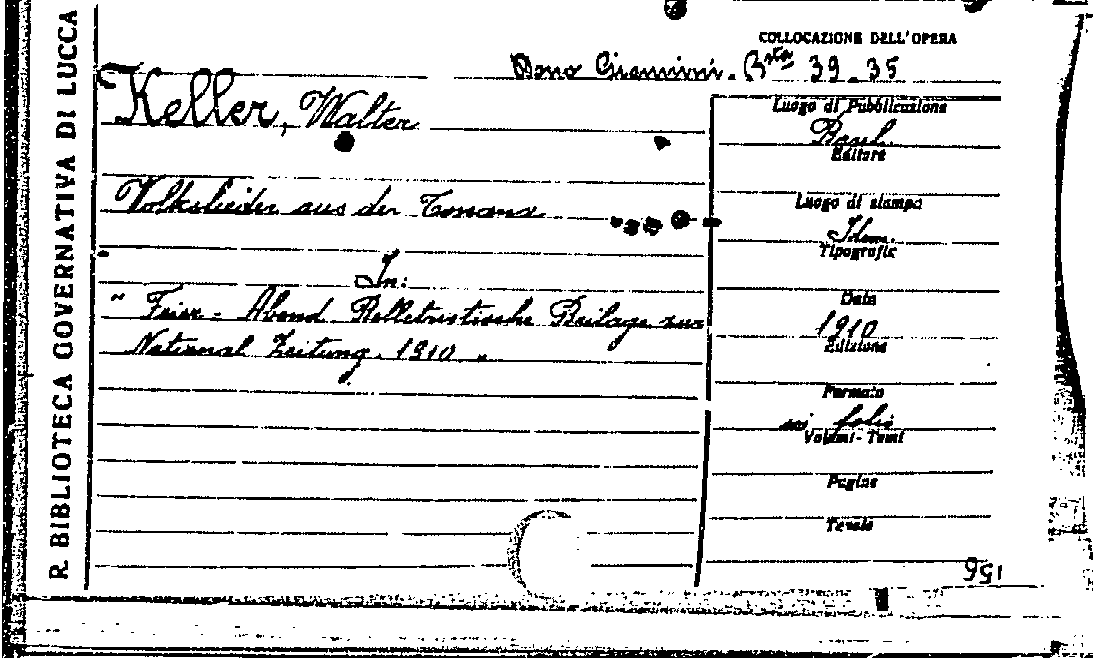 R. BIBLIOTECA GOVERNATIVA DI LUCCA
COLLOCAZIONE DELL'OPERA
Dono Giannini. Bsta 39.35
Keller, Walter
Volkslieder aus der Toscana
In:
" Feier - Abend Belletristische Beilage zur
National Zeitung. 1910 "
Luogo di Pubblicazione
Basel.
Editore
Luogo di stampa
Idem.
Tipografie
Data
1910
Edizione
Formato
in folio
Volumi - Tomi
Pagine
Tavole
156